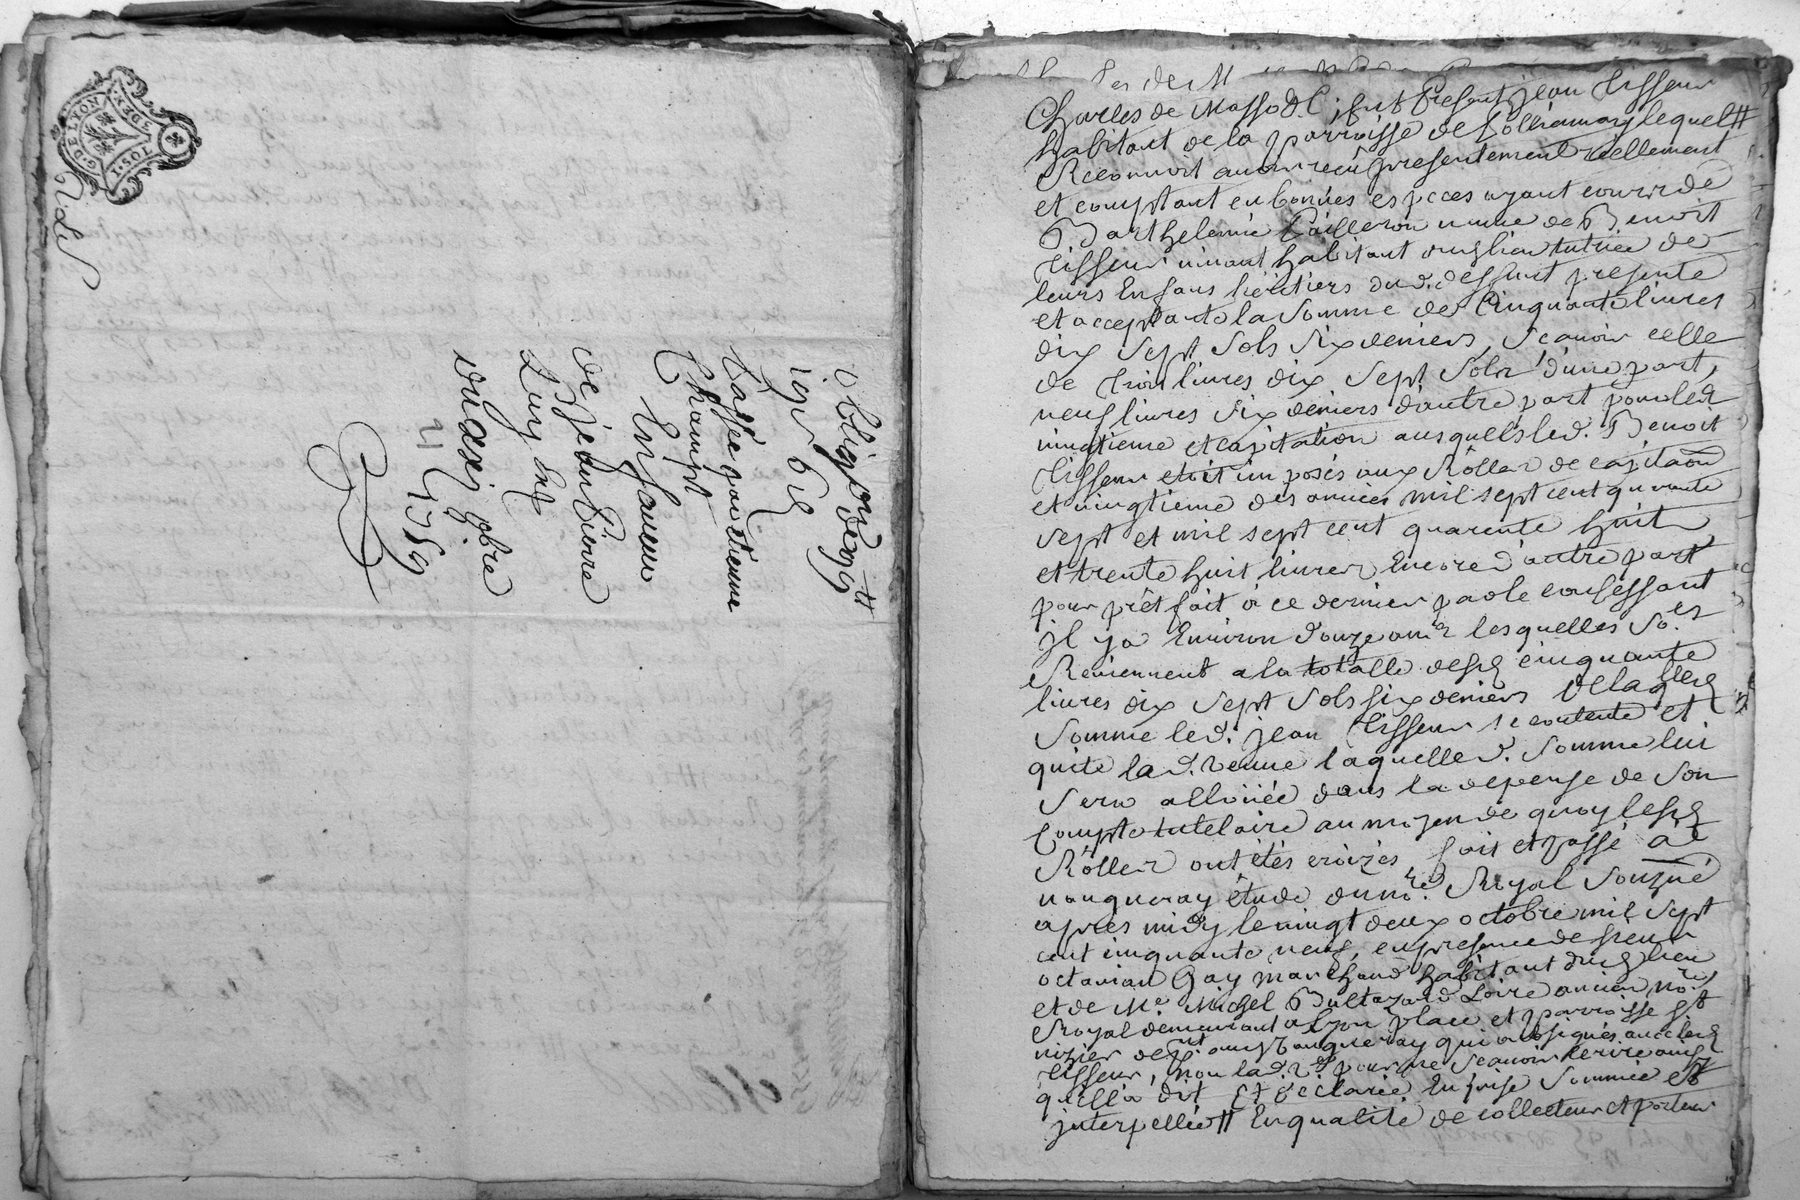 G. DE LYON
3 DEN.
1 SOL
2 des
Obligaon de 99 tt
19 s 6 d
Passée par Etienne
Champt
En faveur
de Jean Pierre
Luy dit
du deux 9bre
1759
Charles de Masso &c, fut Present jean Tisseur
habitant de la parroisse de Pollionnay lequel tt
Reconnoit avoir reçu presentement réellement
et comptant en bonnes especes ayant cours de
Barthelemie Pailleron veuve de Benoit
Tisseur vivant habitant dud lieu tutrice de
leurs Enfans héritiers dud. deffunt presente
et acceptante la Somme de Cinquante livres
dix Sept Sols Six deniers, Scavoir celle
de trois livres dix Sept Sols d'une part,
neuf livres Six deniers d'autre part pour les
vingtieme et capitation ausquels led. Benoit
Tisseur etoit imposés aux Rôlles de capitaon
et vingtieme des années mil sept cent quarante
sept et mil sept cent quarente huit
et trente huit livres Encore d'autre part
pour prêt fait à ce dernier par le confessant
jl ya Environ douze ans lesquelles So.es
Reviennent a la totalle desd cinquante
livres dix Sept Sols six deniers De laqlle
Somme led. jean Tisseur se contente et
quite lad. veuve laquelle d. Somme lui
Sera allouée dans la depense de Son
Compte tutelaire au moyen de quoy lesd
Rôlles ont étés croizés, fait et passé à
vaugneray étude du no.re Royal Souzné
après midy le vingt deux octobre mil Sept
cent cinquante neuf, en presence de sieur
octavian Gay marchand habitant dud lieu
et de Me. Michel Baltazard Loire ancien No.re
Royal demeurant a Lyon place et parroisse St
nizier de pnt aud vaugneray qui ont signés avec led
Tisseur, non lad. ve. pour ne Scavoir Ecrire ainsy
quelle a dit Et declaré En quise Sommée et
jnterpellée tt En qualité de collecteur et porteur